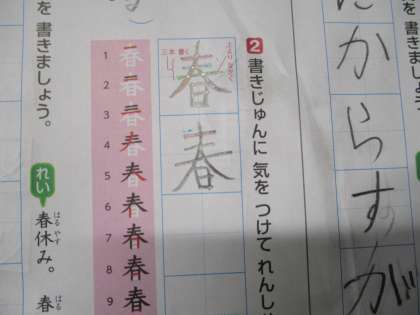 からすが
2 書きじゅんに 気を つけて れんし
春
春
1 春
2 春
3 春
4 春
5 春
6 春
7 春
8 春
9 春
を 書きましょう。
れい 春休み。
はる やす
春
はる